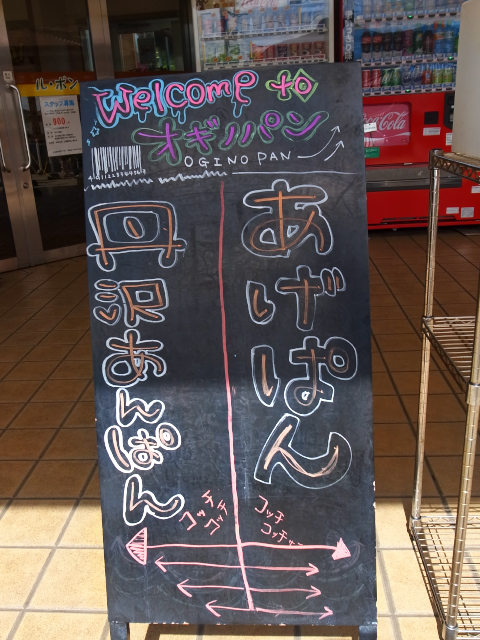 Welcome to
オギノパン
OGINO PAN
あげぱん
丹沢あんぱん
コッチ
コッチッ
ル・ポン
スタッフ募集
Coca-Cola